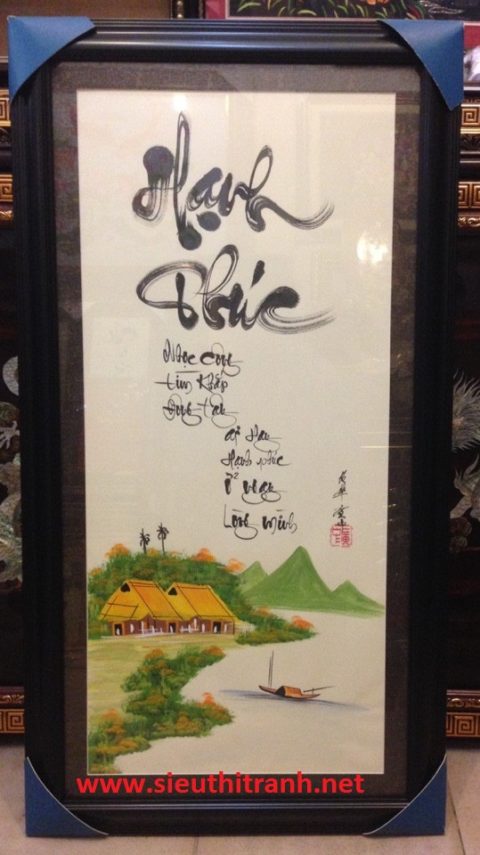 Hạnh
Phúc
Nhọc công
tìm khắp
Đông tây
ai hay
Hạnh phúc
ở ngay
Lòng mình
www.sieuthitranh.net